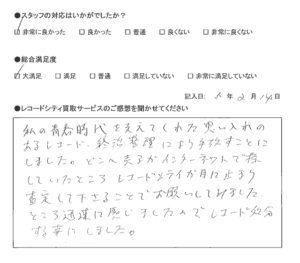 ●スタッフの対応はいかがでしたか?
□非常に良かった □良かった □普通 □良くない □非常に良くない
●総合満足度
□大満足 □満足 □普通 □満足していない □非常に満足していない
記入日: 年 2月14日
●レコードシティ買取サービスのご感想を聞かせてください
私の青春時代を支えてくれた思い入れの
あるレコード、終活整理により手放すことに
しました。どこへ売るかインターネットで探
していたところ レコードシティが目に止まり
査定して下さることでお願いしてみました。
ところ迅速に感じましたのでレコード処分
する事にしました。